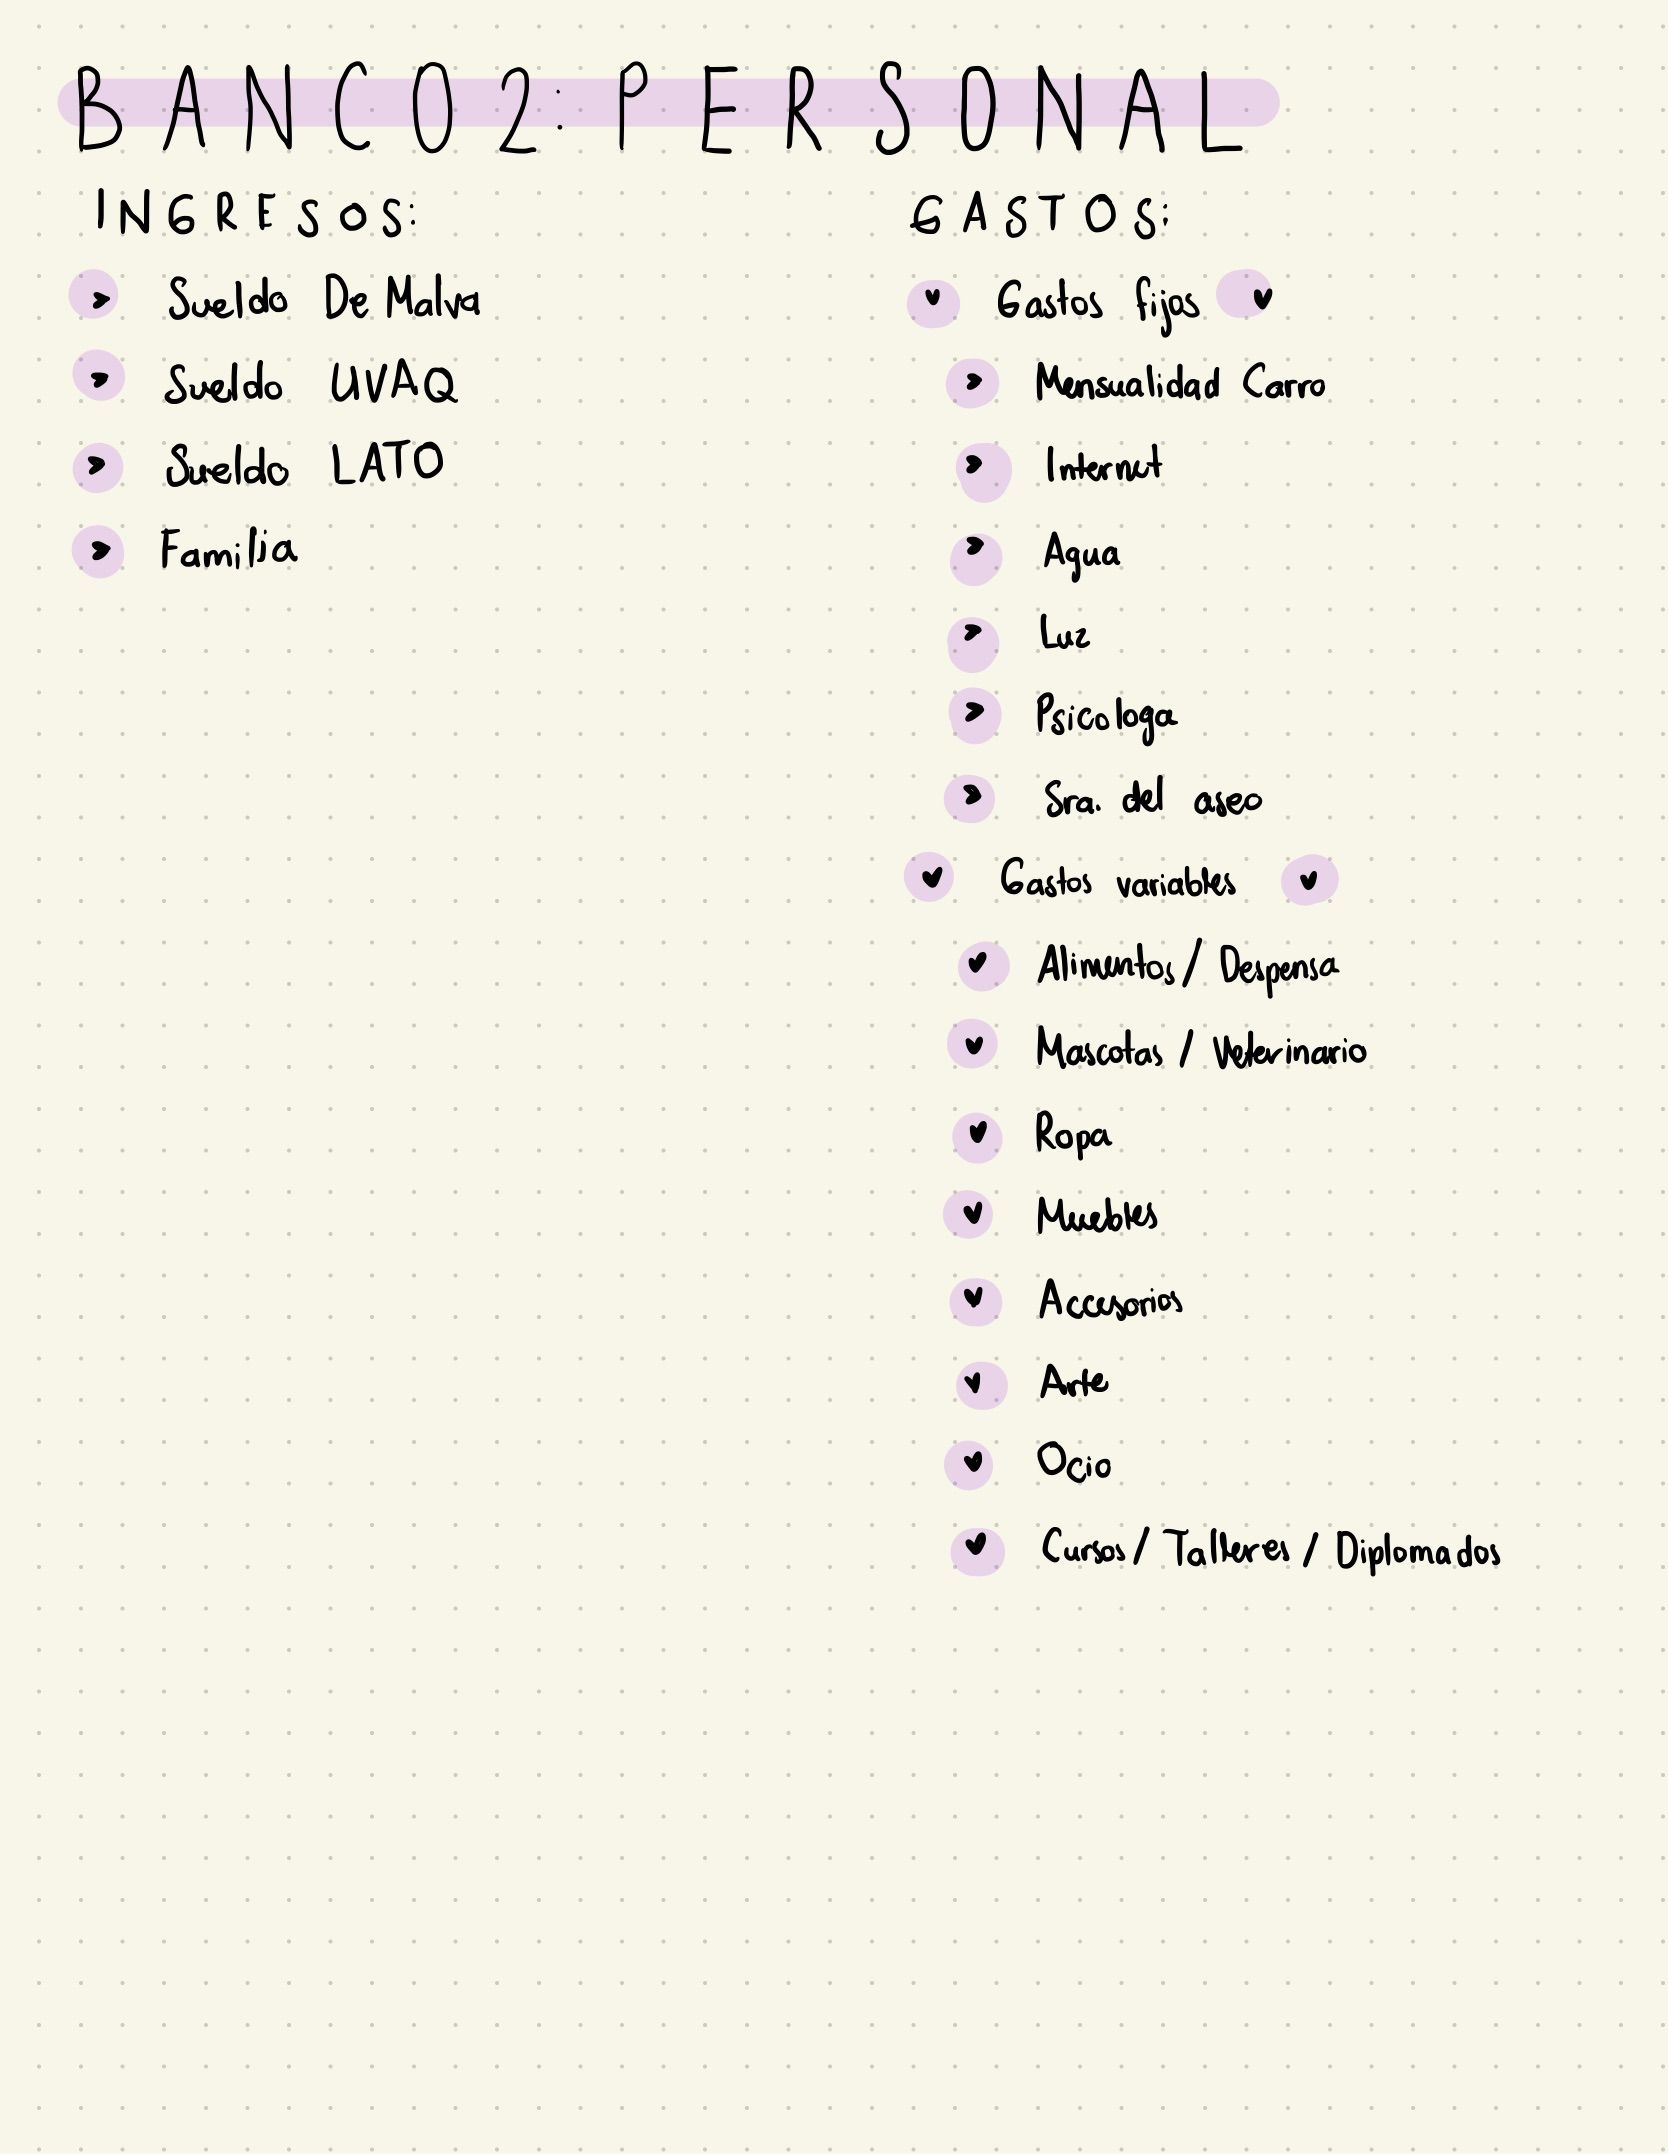 BANCO2: PERSONAL
INGRESOS:
Sueldo De Malva
Sueldo UVAQ
Sueldo LATO
Familia
GASTOS:
Gastos fijos
Mensualidad Carro
Internet
Agua
Luz
Psicologa
Sra. del aseo
Gastos variables
Alimentos / Despensa
Mascotas / Veterinario
Ropa
Muebles
Accesorios
Arte
Ocio
Cursos / Talleres / Diplomados